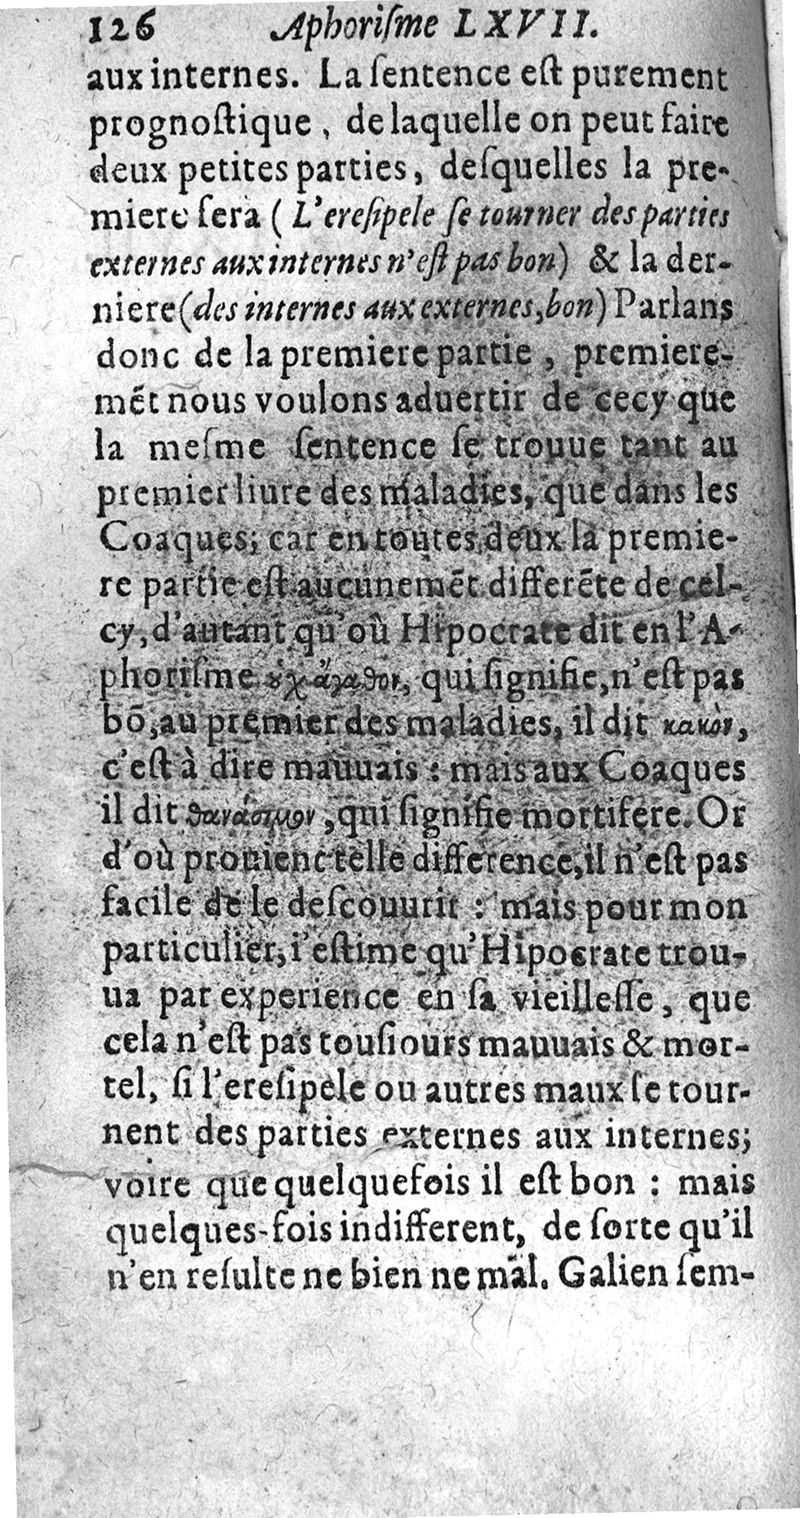 126 Aphoriſme LXVII.
aux internes. La ſentence eſt purement
prognoſtique, de laquelle on peut faire
deux petites parties, deſquelles la pre-
miere ſera (L'ereſipele ſe tourner des parties
externes aux internes n'eſt pas bon) & la der-
niere (des internes aux externes, bon) Parlans
donc de la premiere partie, premiere-
mẽt nous voulons aduertir de cecy que
la meſme ſentence ſe trouue tant au
premier liure des maladies, que dans les
Coaques; car en toutes deux la premie-
re partie eſt aucunemẽt differẽte de cel-
cy, d'autant qu'où Hipocrate dit en l'A-
phoriſme οὐχ ἀγαθὸν, qui ſignifie, n'eſt pas
bõ, au premier des maladies, il dit κακὸν,
c'eſt à dire mauuais : mais aux Coaques
il dit θανάσιμον, qui ſignifie mortifere. Or
d'où prouient telle difference, il n'eſt pas
facile de le deſcouurir : mais pour mon
particulier, i'eſtime qu'Hipocrate trou-
ua par experience en ſa vieilleſſe, que
cela n'eſt pas touſiours mauuais & mor-
tel, ſi l'ereſipele ou autres maux ſe tour-
nent des parties externes aux internes;
voire que quelquefois il eſt bon : mais
quelques-fois indifferent, de ſorte qu'il
n'en reſulte ne bien ne mal. Galien ſem-